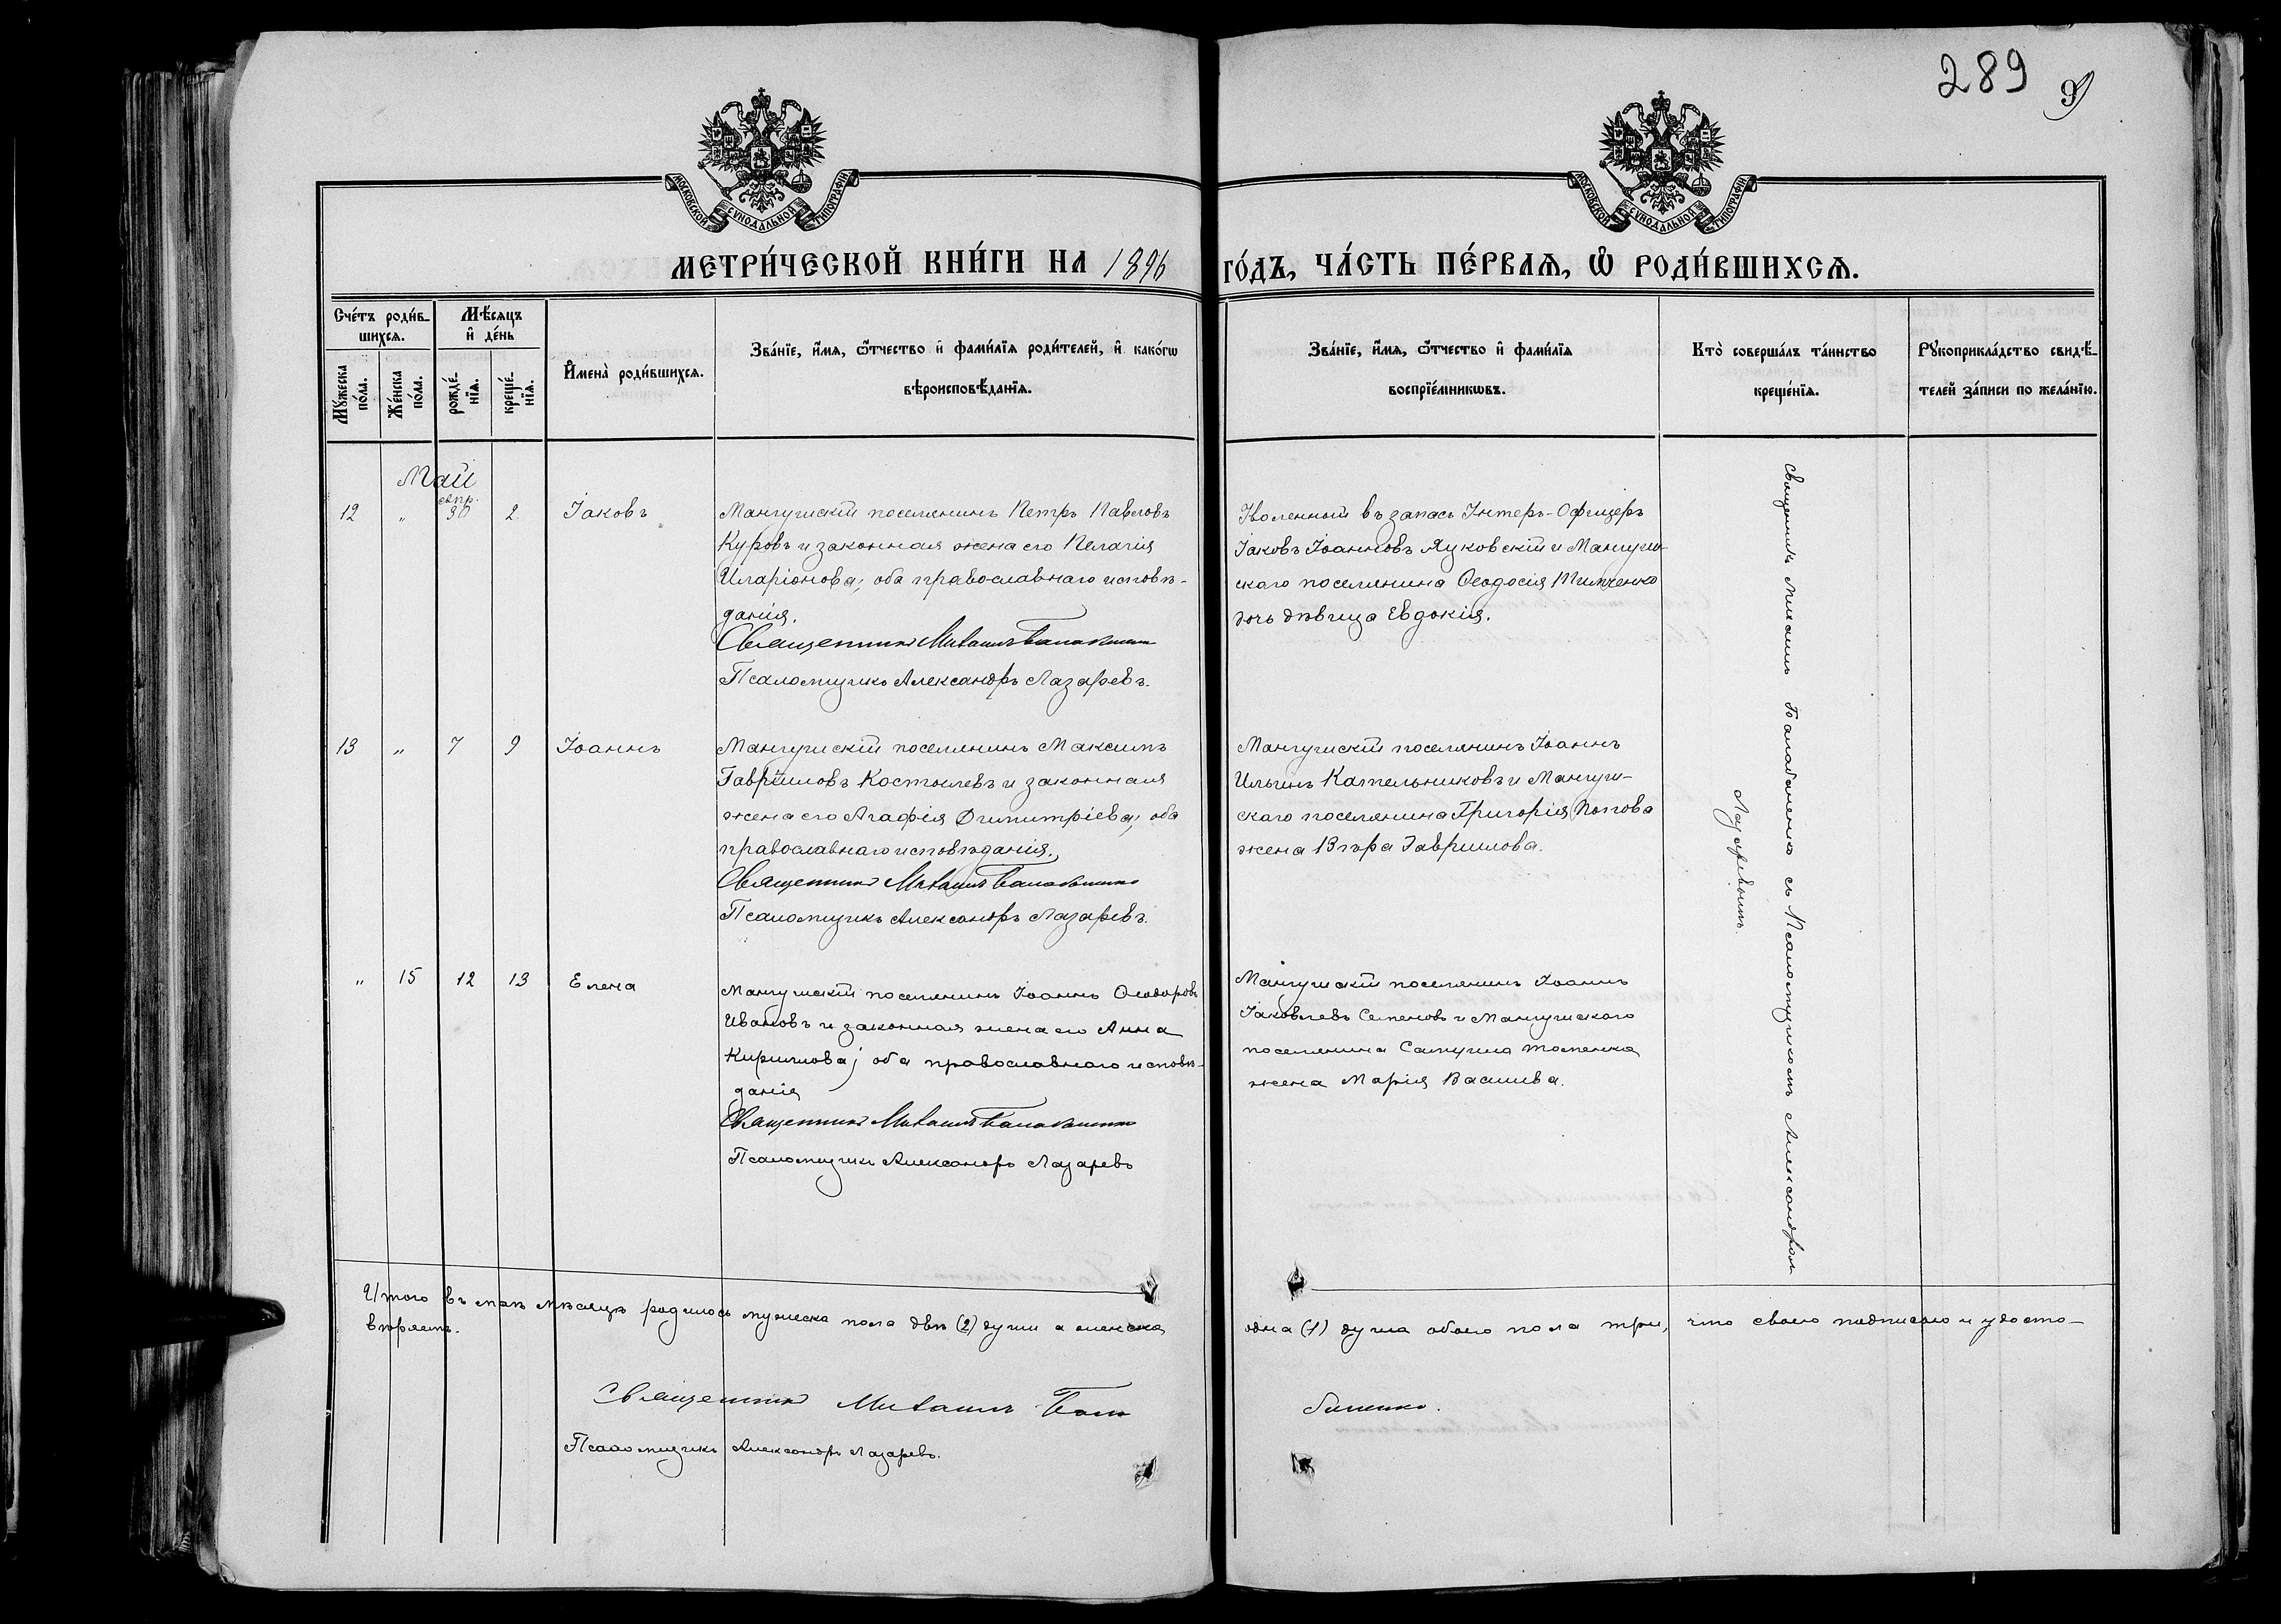 289
9
МОСКОВСКОЙ СѴНОДАЛЬНОЙ ТИПОГРАФІИ
МОСКОВСКОЙ СѴНОДАЛЬНОЙ ТИПОГРАФІИ
МЕТРИ́ЧЕСКОЙ КНИ́ГИ НА 1896 ГО́ДЪ, ЧА́СТЬ ПЕ́РВАЯ, Ѡ РОДИ́ВШИХСЯ.
Сче́тъ роди́в-
шихся.
Мѣ́сяцъ
и де́нь
Му́жеска по́ла.
Же́нска по́ла.
рожде́-
нїя.
креще́-
нїя.
Имена̀ роди́вшихся.
Зва́нїе, и́мя, ѻ́тчество и фами́лїя роди́телей, и како́гѡ
вѣроисповѣ́данїя.
Зва́нїе, и́мя, ѻ́тчество и фами́лїя
воспрїе́мникωвъ.
Кто̀ соверша́лъ та́инство
креще́нїя.
Рꙋкоприкла́дство свидѣ́-
телей за́писи по жела́нїю.
Май
апр.
12 " 30 2 Іаковъ
Мангушскій поселянинъ Петръ Павловъ
Куровъ и законная жена его Пелагія
Иларіонова; оба православнаго исповѣ-
данія.
Священникъ Михаилъ Балабаненко
Псаломщикъ Александръ Лазаревъ.
Уволенный въ запасъ Унтеръ-Офицеръ
Іаковъ Іоанновъ Яцковскій и Мангуш-
скаго поселянина Ѳеодосія
дочь дѣвица Евдокія.
13 " 7 9 Іоаннъ
Мангушскій поселянинъ Максимъ
Гавріиловъ Костылевъ и законная
жена его Агафія Димитріева; оба
православнаго исповѣданія.
Священникъ Михаилъ Балабаненко
Псаломщикъ Александръ Лазаревъ.
Мангушскій поселянинъ Іоаннъ
Ильинъ Кательниковъ и Мангуш-
скаго поселянина Григорія Попова
жена Вѣра Гавриилова.
" 15 12 13 Елена
Мангушскій поселянинъ Іоаннъ Ѳеодоровъ
Ивановъ и законная жена его Анна
Кириллова; оба православнаго исповѣ-
данія
Священникъ Михаилъ Балабаненко
Псаломщикъ Александръ Лазаревъ
Мангушскій поселянинъ Іоаннъ
Іаковлевъ Семеновъ и Мангушскаго
поселянина Самуила
жена Марія Васильева.
Священникъ Михаилъ Балабаненко съ Псаломщикомъ Александромъ
Лазаревымъ.
Итого въ маѣ мѣсяцѣ родилось мужеска пола двѣ (2) души а женска одна (1) душа обоего пола три, что своею подписью и удосто-
вѣряемъ.
Священникъ Михаилъ Балабаненко.
Псаломщикъ Александръ Лазаревъ.